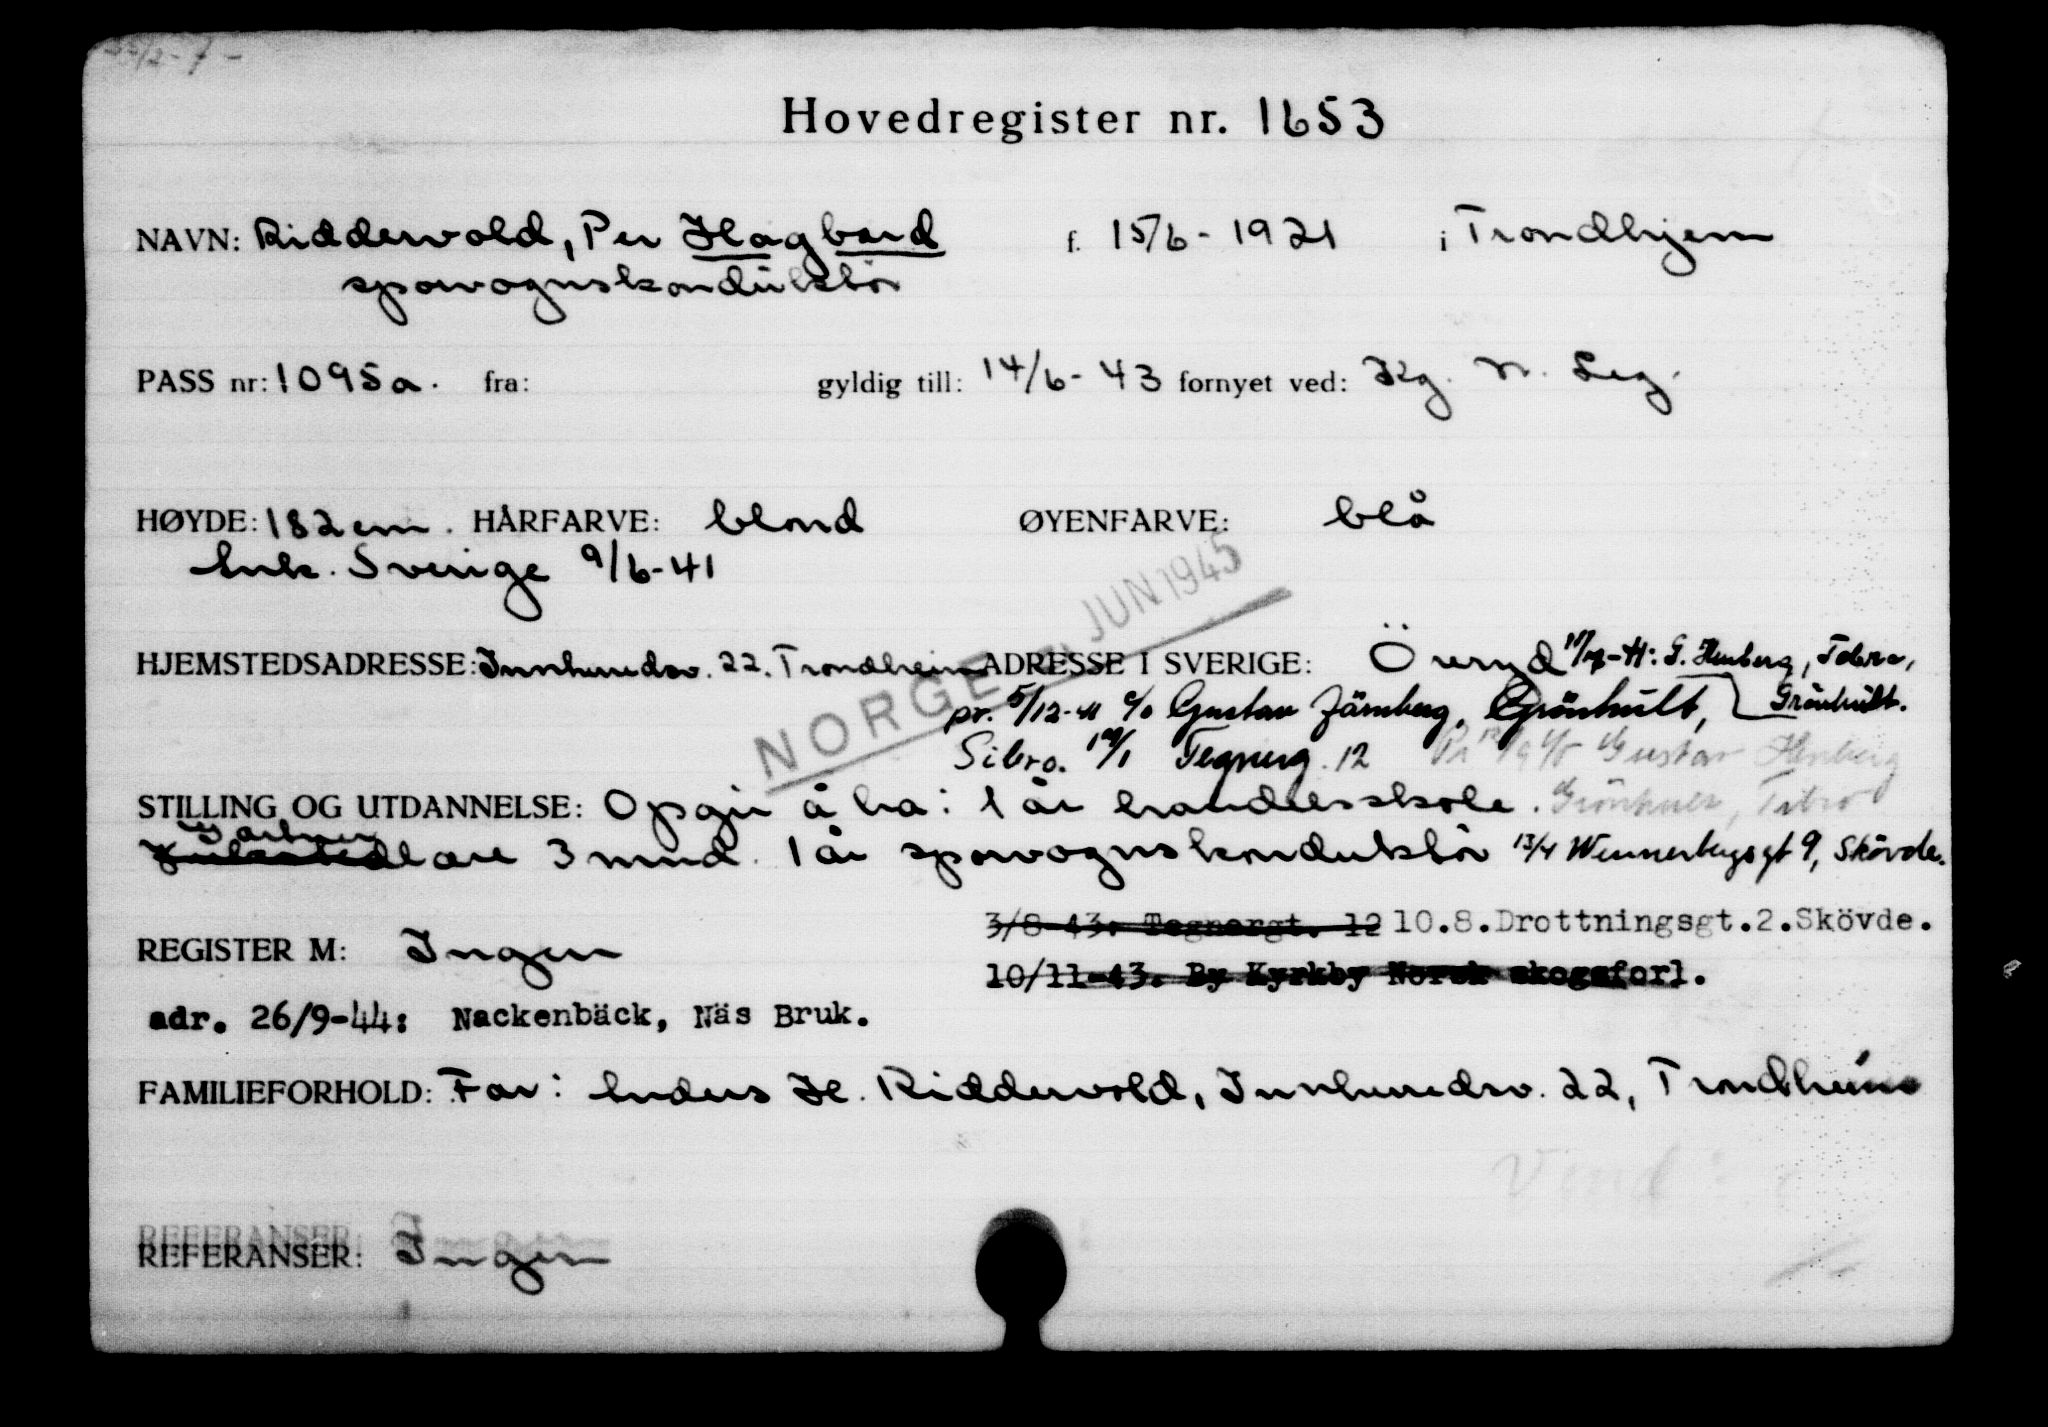 Hovedregister nr. 1653
NAVN: Riddervold, Per Hagbard f. 15/6-1921 i Trondhjem
sporvognskonduktör
PASS nr: 1095a. fra: gyldig till: 14/6-43 fornyet ved: Kg. N. Leg.
HØYDE: 182 cm. HÅRFARVE: blond ØYENFARVE: blå
Ank. Sverige 9/6-41
NORGE JUN 1945
HJEMSTEDSADRESSE: Innherredsv. 22. Trondheim ADRESSE I SVERIGE: Öreryd
pr. 5/12-41 c/o Gustav Järnberg, Grönhult, Grönhult.
Tegnerg. 12 Gustav
STILLING OG UTDANNELSE: Opgir å ha: 1 år handelsskole. Tibro
Gartnerlære 3 mnd. 1 år sporvognskonduktör 13/4 Wennerbergsgt 9, Skövde.
3/8-43: Tegnergt. 12 10.8. Drottningsgt.2.Skövde.
REGISTER M: Ingen
10/11-43. By Kyrkby Norsk skogsforl.
adr. 26/9-44: Nackenbäck, Näs Bruk.
FAMILIEFORHOLD: Far: Anders H. Riddervold, Innherredsv. 22, Trondheim
Vend
REFERANSER: Ingen